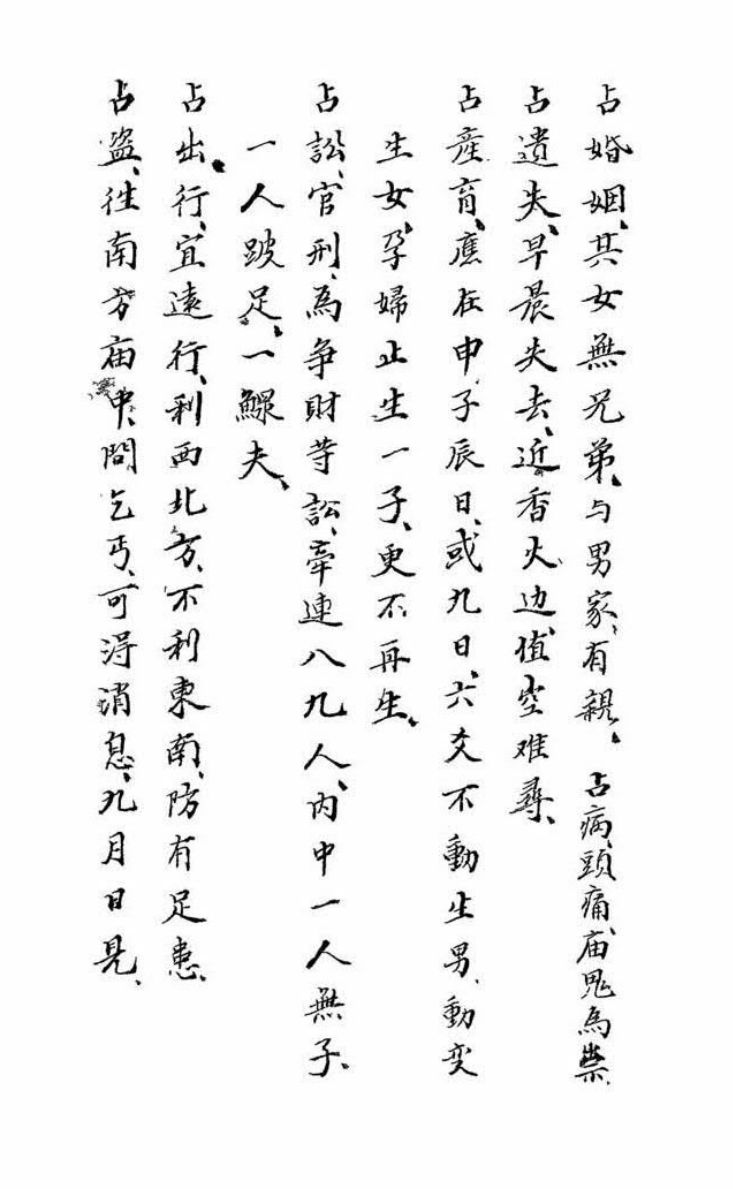 占婚姻、其女無兄弟、与男家、有親、 占病、頭痛、庙鬼為祟、
占遺失、早晨失去、近香火边、值空难尋、
占産育、應在申子辰日、或九日、六爻不動生男、動变
生女、孕婦止生一子、更不再生、
占訟、官刑、為争財等訟、牽連八九人、内中一人無子、
一人跛足、一鰥夫、
占出行、宜遠行、利西北方、不利東南、防有足患、
占盗、往南方庙中、問乞丐、可得消息、九月日見、